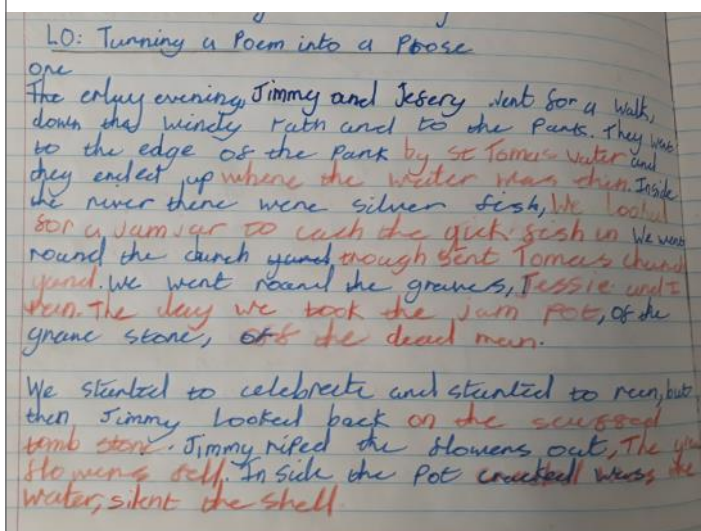 LO: Turning a Poem into a Prose
one
The erlay evening, Jimmy and Jesery went for a walk,
down the windy path and to the Park. They went
to the edge of the Park by st Tomas water and
they ended up where the water was thin. Inside
the river there were silver fish, We looked
for a jam jar to cach the fish in We went
round the church yard trough sent Tomas church
yard. We went round the graves, Jessie and I
ran. The day we took the jam pot, of the
grave stone, off the dead man.
We started to celebrate and started to run, but
then Jimmy looked back on the scuffed
tomb stone. Jimmy riped the flowers out, The
flowers fell. In side the Pot cracked was, the
water, silent the shell